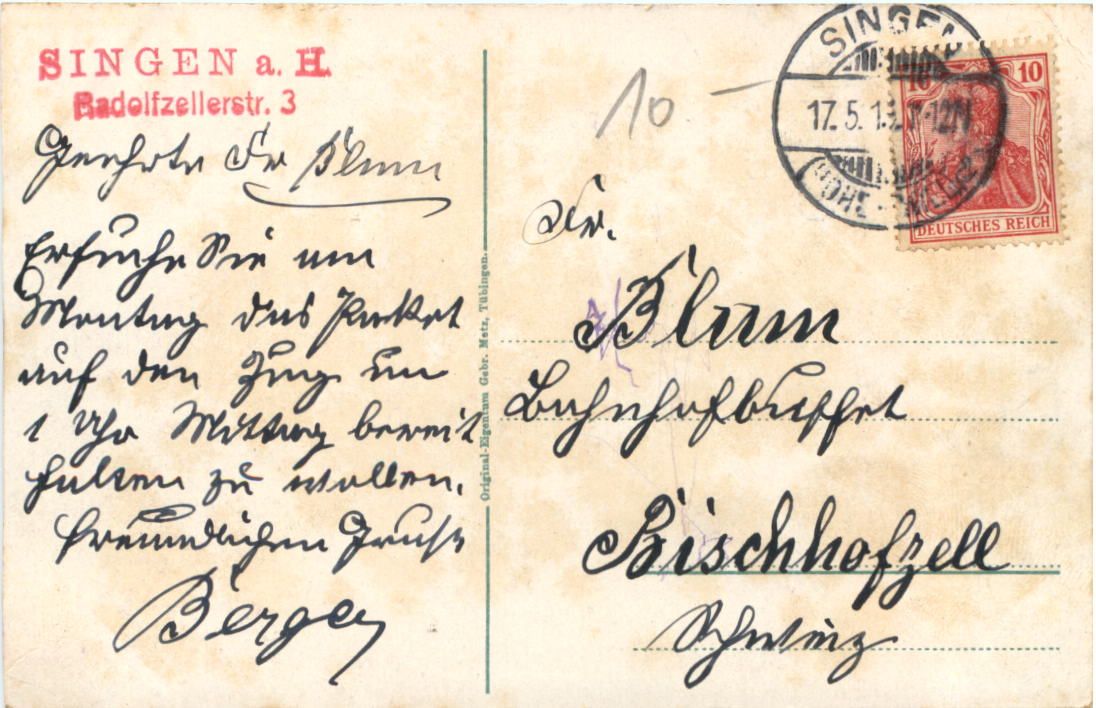 SINGEN a. H.
Radolfzellerstr. 3
Geehrte Fr Blum
Ersuche Sie um
Montag das Packet
auf den Zug um
1 Uhr Mittag bereit
halten zu wollen.
freundlichen Gruss
Berger
Original-Eigentum Gebr. Metz, Tübingen.
10
SINGEN
17. 5. 1
-12N
10
10
DEUTSCHES REICH
Fr.
Blum
Bahnhofbuffet
Bischhofzell
Schweiz